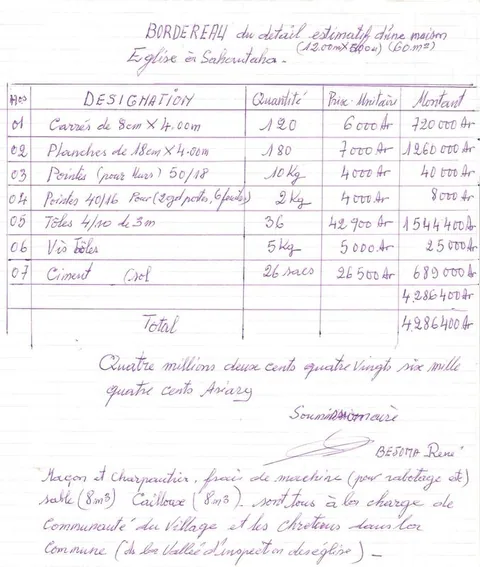 BORDEREAU du detail estimatif d'une maison
(12.00m X 5.00m) (60m²)
Eglise à Sahorutaha.
Nos DESIGNATION Quantité Prix-Unitair Montant
01 Carrés de 8cm X 4.00m 120 6000Ar 720000Ar
02 Planches de 18cm X 4.00m 180 7000Ar 1260000Ar
03 Pointes (pour Murs) 50/18 10Kg 4000Ar 40000Ar
04 Pointes 40/16 Pour (2gdportes, 6 fenêtres) 2Kg 4000Ar 8000Ar
05 Tôles 4/10 de 3m 36 42900Ar 1544400Ar
06 Vis Tôles 5Kg 5000Ar 25000Ar
07 Ciment (sol 26 sacs 26500Ar 689000Ar
4.286400Ar
Total 4.286400Ar
Quatre millions deux cents quatre Vingts six mille
quatre cents Ariary
BEJOMA René
Maçon et Charpentier, frais de machine (pour rabotage etc)
sable (8m3) Cailloux (8m3 . sont tous à la charge de
Communauté du Village et les chretiens dans la
Commune (de la Vallée d'inspection des église) -